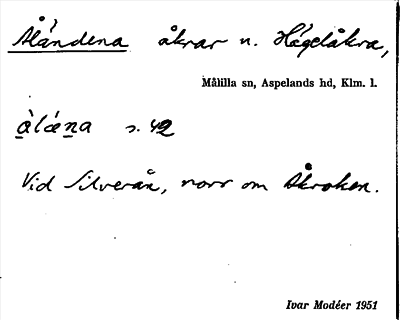 Åländena åkrar n. Hägelåkra,
Målilla sn, Aspelands hd, Klm. l.
s. 42
Vid Silverån, norr om Åkroken.
Ivar Modéer 1951